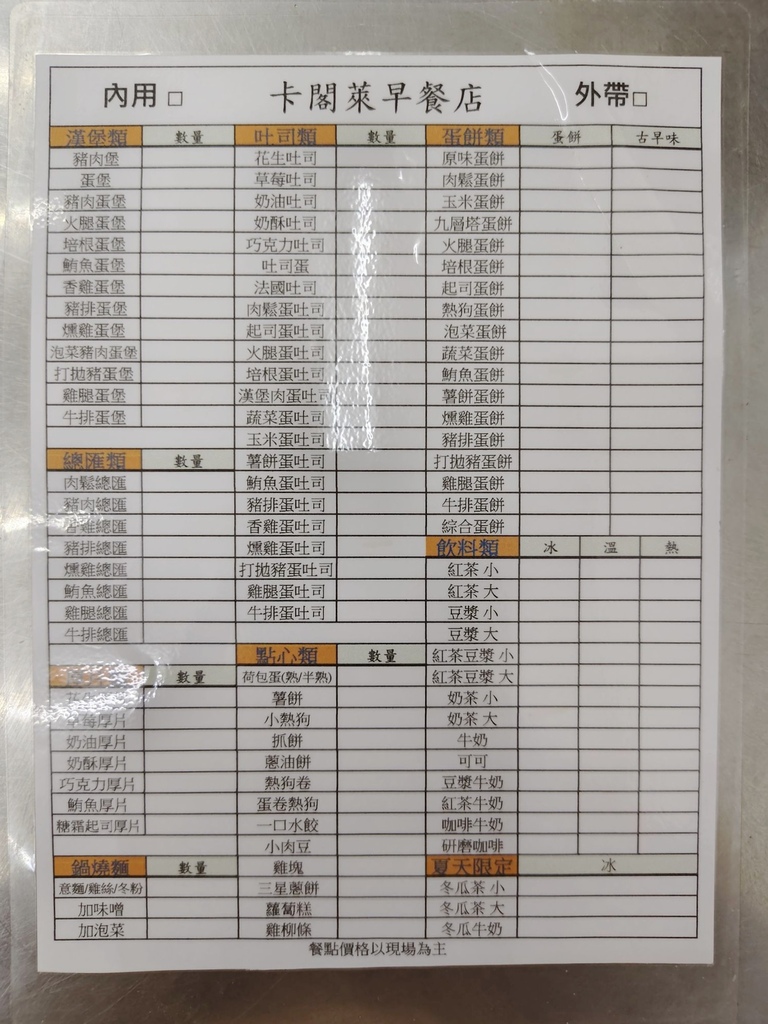 內用 □ 卡閣萊早餐店 外帶□
漢堡類 數量
豬肉堡
蛋堡
豬肉蛋堡
火腿蛋堡
培根蛋堡
鮪魚蛋堡
香雞蛋堡
豬排蛋堡
燻雞蛋堡
泡菜豬肉蛋堡
打拋豬蛋堡
雞腿蛋堡
牛排蛋堡
總匯類 數量
肉鬆總匯
豬肉總匯
香雞總匯
豬排總匯
燻雞總匯
鮪魚總匯
雞腿總匯
牛排總匯
數量
草莓厚片
奶油厚片
奶酥厚片
巧克力厚片
鮪魚厚片
糖霜起司厚片
鍋燒麵 數量
意麵/雞絲/冬粉
加味噌
加泡菜
吐司類 數量
花生吐司
草莓吐司
奶油吐司
奶酥吐司
巧克力吐司
吐司蛋
法國吐司
肉鬆蛋吐司
起司蛋吐司
火腿蛋吐司
培根蛋吐司
漢堡肉蛋吐司
蔬菜蛋吐司
玉米蛋吐司
薯餅蛋吐司
鮪魚蛋吐司
豬排蛋吐司
香雞蛋吐司
燻雞蛋吐司
打拋豬蛋吐司
雞腿蛋吐司
牛排蛋吐司
點心類 數量
荷包蛋(熟/半熟)
薯餅
小熱狗
抓餅
蔥油餅
熱狗卷
蛋卷熱狗
一口水餃
小肉豆
雞塊
三星蔥餅
蘿蔔糕
雞柳條
蛋餅類 蛋餅 古早味
原味蛋餅
肉鬆蛋餅
玉米蛋餅
九層塔蛋餅
火腿蛋餅
培根蛋餅
起司蛋餅
熱狗蛋餅
泡菜蛋餅
蔬菜蛋餅
鮪魚蛋餅
薯餅蛋餅
燻雞蛋餅
豬排蛋餅
打拋豬蛋餅
雞腿蛋餅
牛排蛋餅
綜合蛋餅
飲料類 冰 溫 熱
紅茶 小
紅茶 大
豆漿 小
豆漿 大
紅茶豆漿 小
紅茶豆漿 大
奶茶 小
奶茶 大
牛奶
可可
豆漿牛奶
紅茶牛奶
咖啡牛奶
研磨咖啡
夏天限定 冰
冬瓜茶 小
冬瓜茶 大
冬瓜牛奶
餐點價格以現場為主